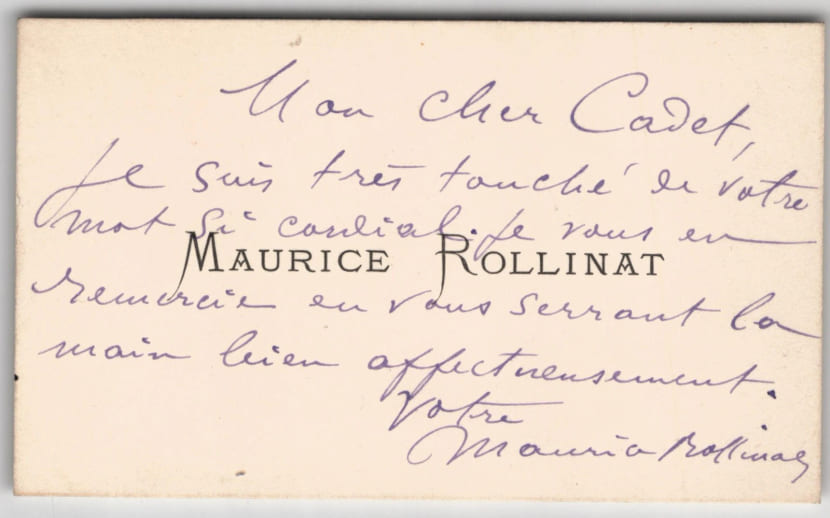 Mon cher Cadet,
Je suis très touché de votre
mot si cordial. Je vous en
MAURICE ROLLINAT
remercie en vous serrant la
main bien affectueusement.
Votre
Maurice Rollinat